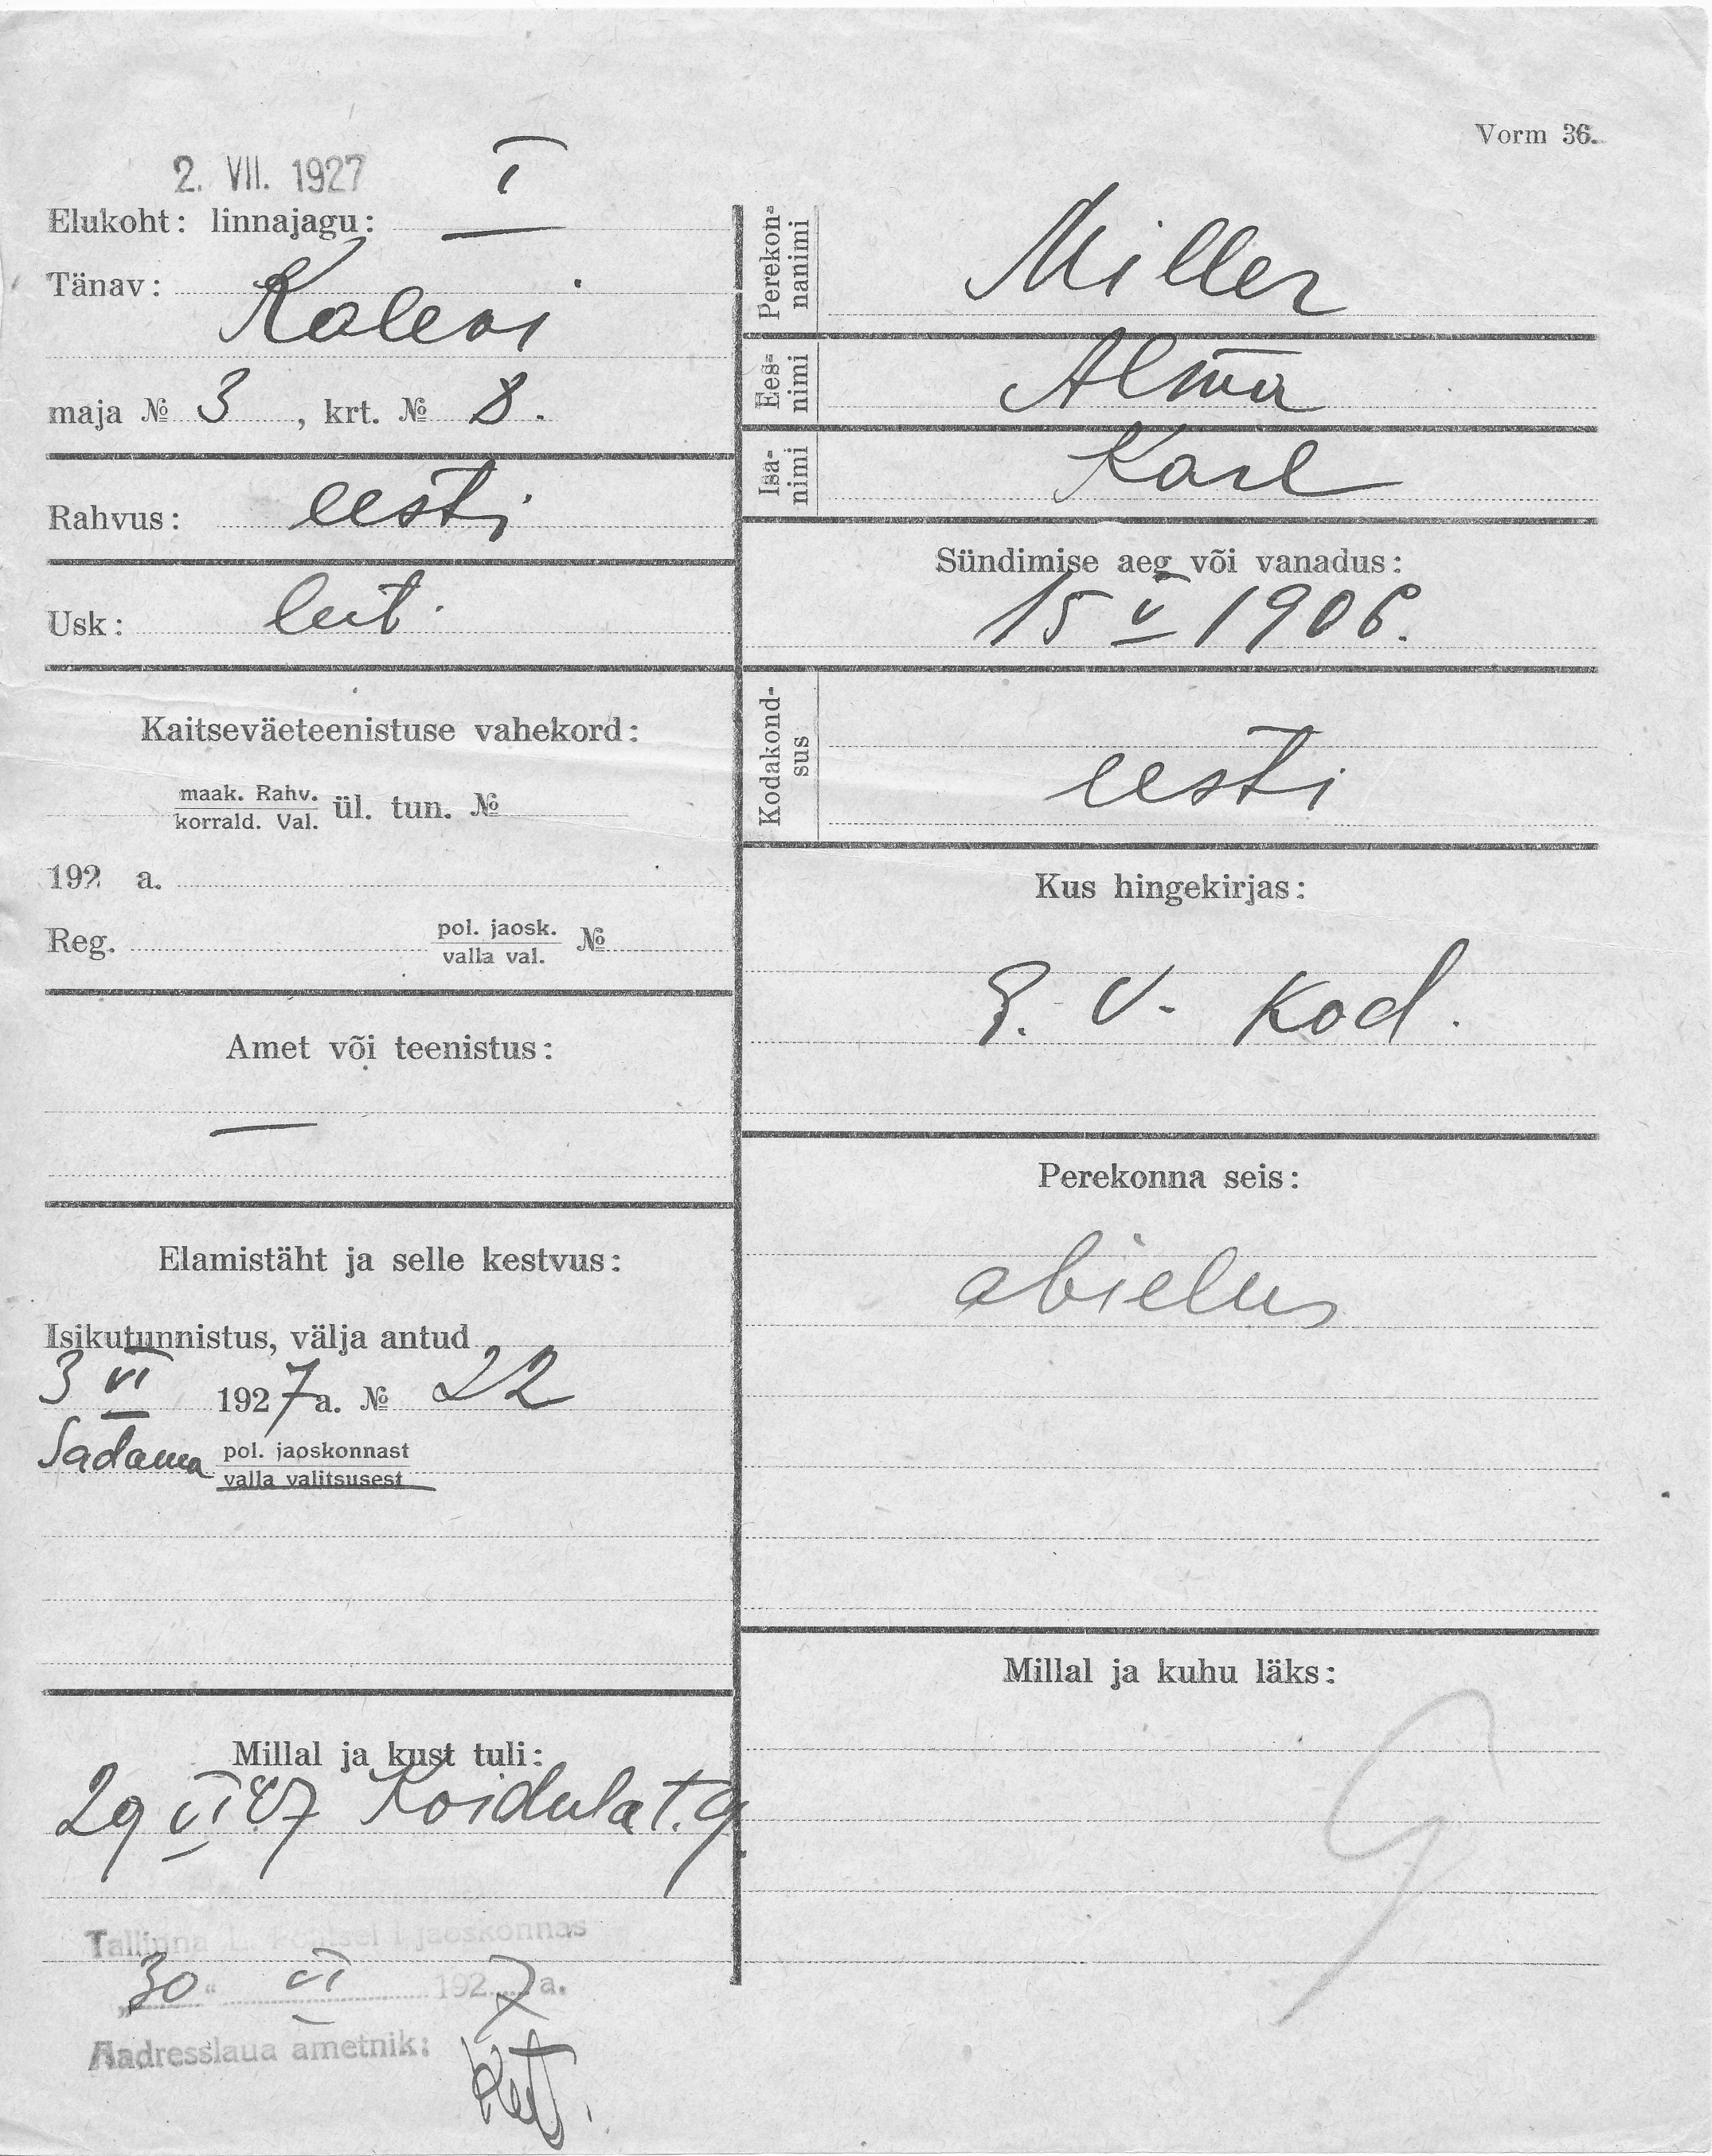 Vorm 36.
2. VII. 1927
Elukoht: linnajagu: I
Tänav: Kalevi
maja № 3, krt. № 8.
Rahvus: eesti
Usk: lut.
Kaitseväeteenistuse vahekord:
maak. Rahv.
korrald. Val. ül. tun. №
192 a.
Reg. pol. jaosk. №
valla val.
Amet või teenistus:
—
Elamistäht ja selle kestvus:
Isikutunnistus, välja antud
3 VI 1927 a. № 22
Sadama pol. jaoskonnast
valla valitsusest
Millal ja kust tuli:
29 VI 27 Koidula t. 9
Tallinna L. jaoskonnas
"30" VI 1927 a.
Aadresslaua ametnik:
Perekon-
nanimi Miller
Ees-
nimi Alma
Isa-
nimi Karl
Sündimise aeg või vanadus:
15 V 1906.
Kodakond-
sus eesti
Kus hingekirjas:
E. V. Kod.
Perekonna seis:
abielus
Millal ja kuhu läks: